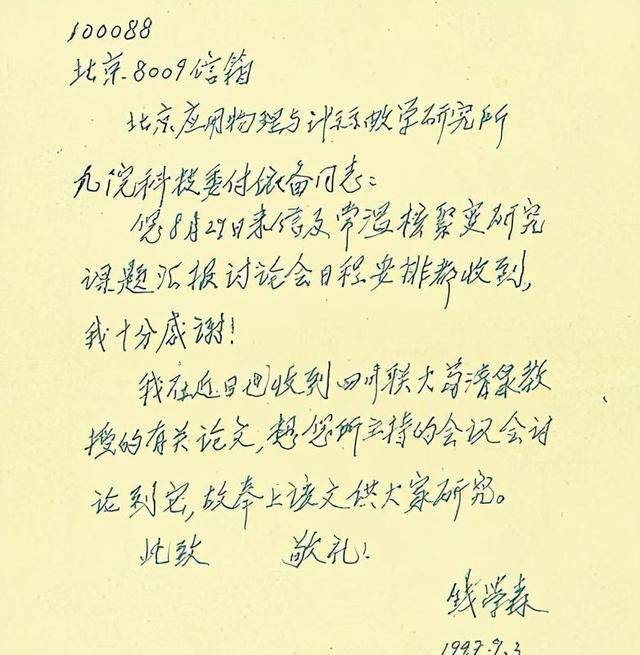 100088
北京8009信箱
北京应用物理与计算数学研究所
九院科技委付依备同志:
您8月29日来信及常温核聚变研究
课题汇报讨论会日程安排都收到,
我十分感谢!
我在近日也收到四川联大苟清泉教
授的有关论文,想您所主持的会议会讨
论到它,故奉上该文供大家研究。
此致 敬礼!
钱学森
1997.9.3